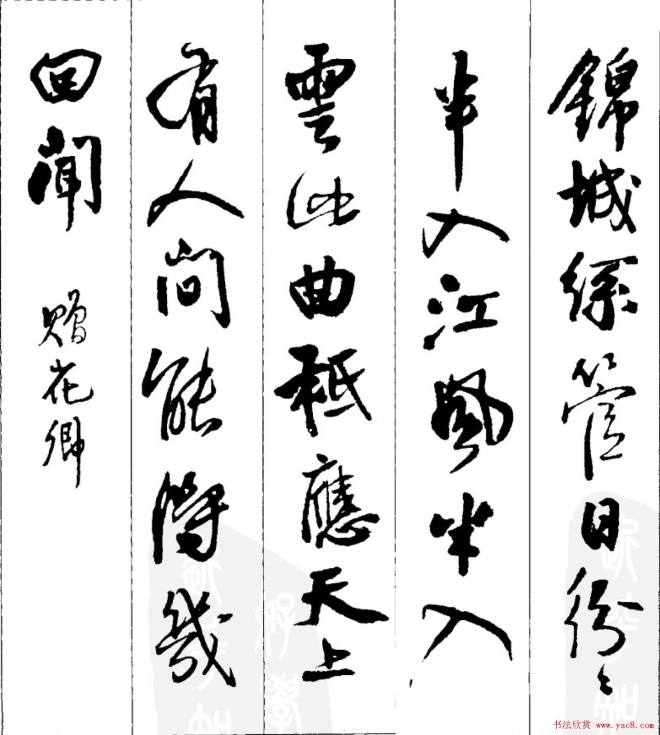 錦城絲管日紛〻
半入江風半入
雲此曲秪應天上
有人間能得幾
回聞
贈花卿
书法欣赏 www.yac8.com